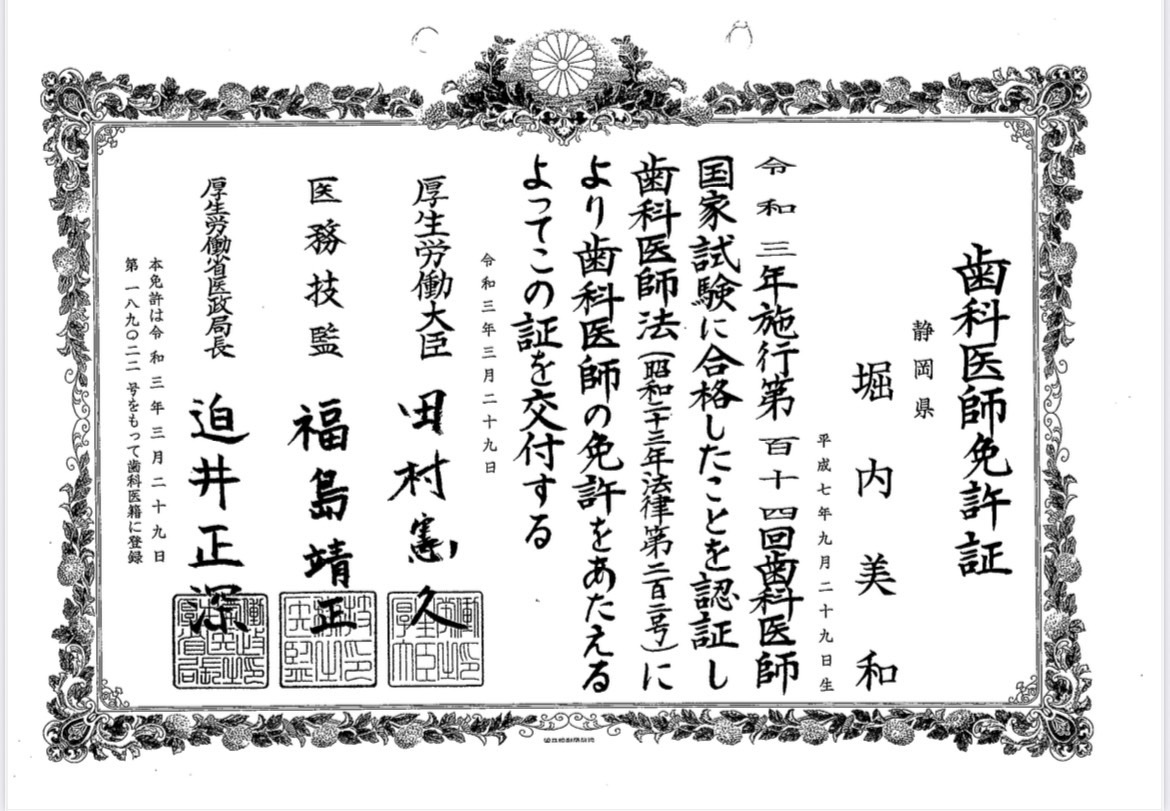 歯科医師免許証
静岡県
堀内美和
平成七年九月二十九日生
令和三年施行第百十四回歯科医師
国家試験に合格したことを認証し
歯科医師法(昭和二十三年法律第二百二号)に
より歯科医師の免許をあたえる
よってこの証を交付する
令和三年三月二十九日
厚生労働大臣 田村憲久
医務技監 福島靖正
厚生労働省医政局長 迫井正深
本免許は令和三年三月二十九日
第一八九〇二二号をもって歯科医籍に登録